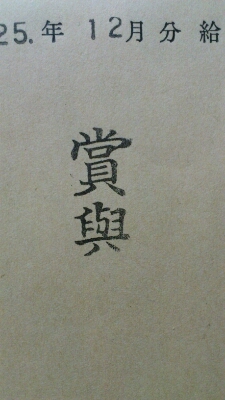 25.年 12月分 給
賞與